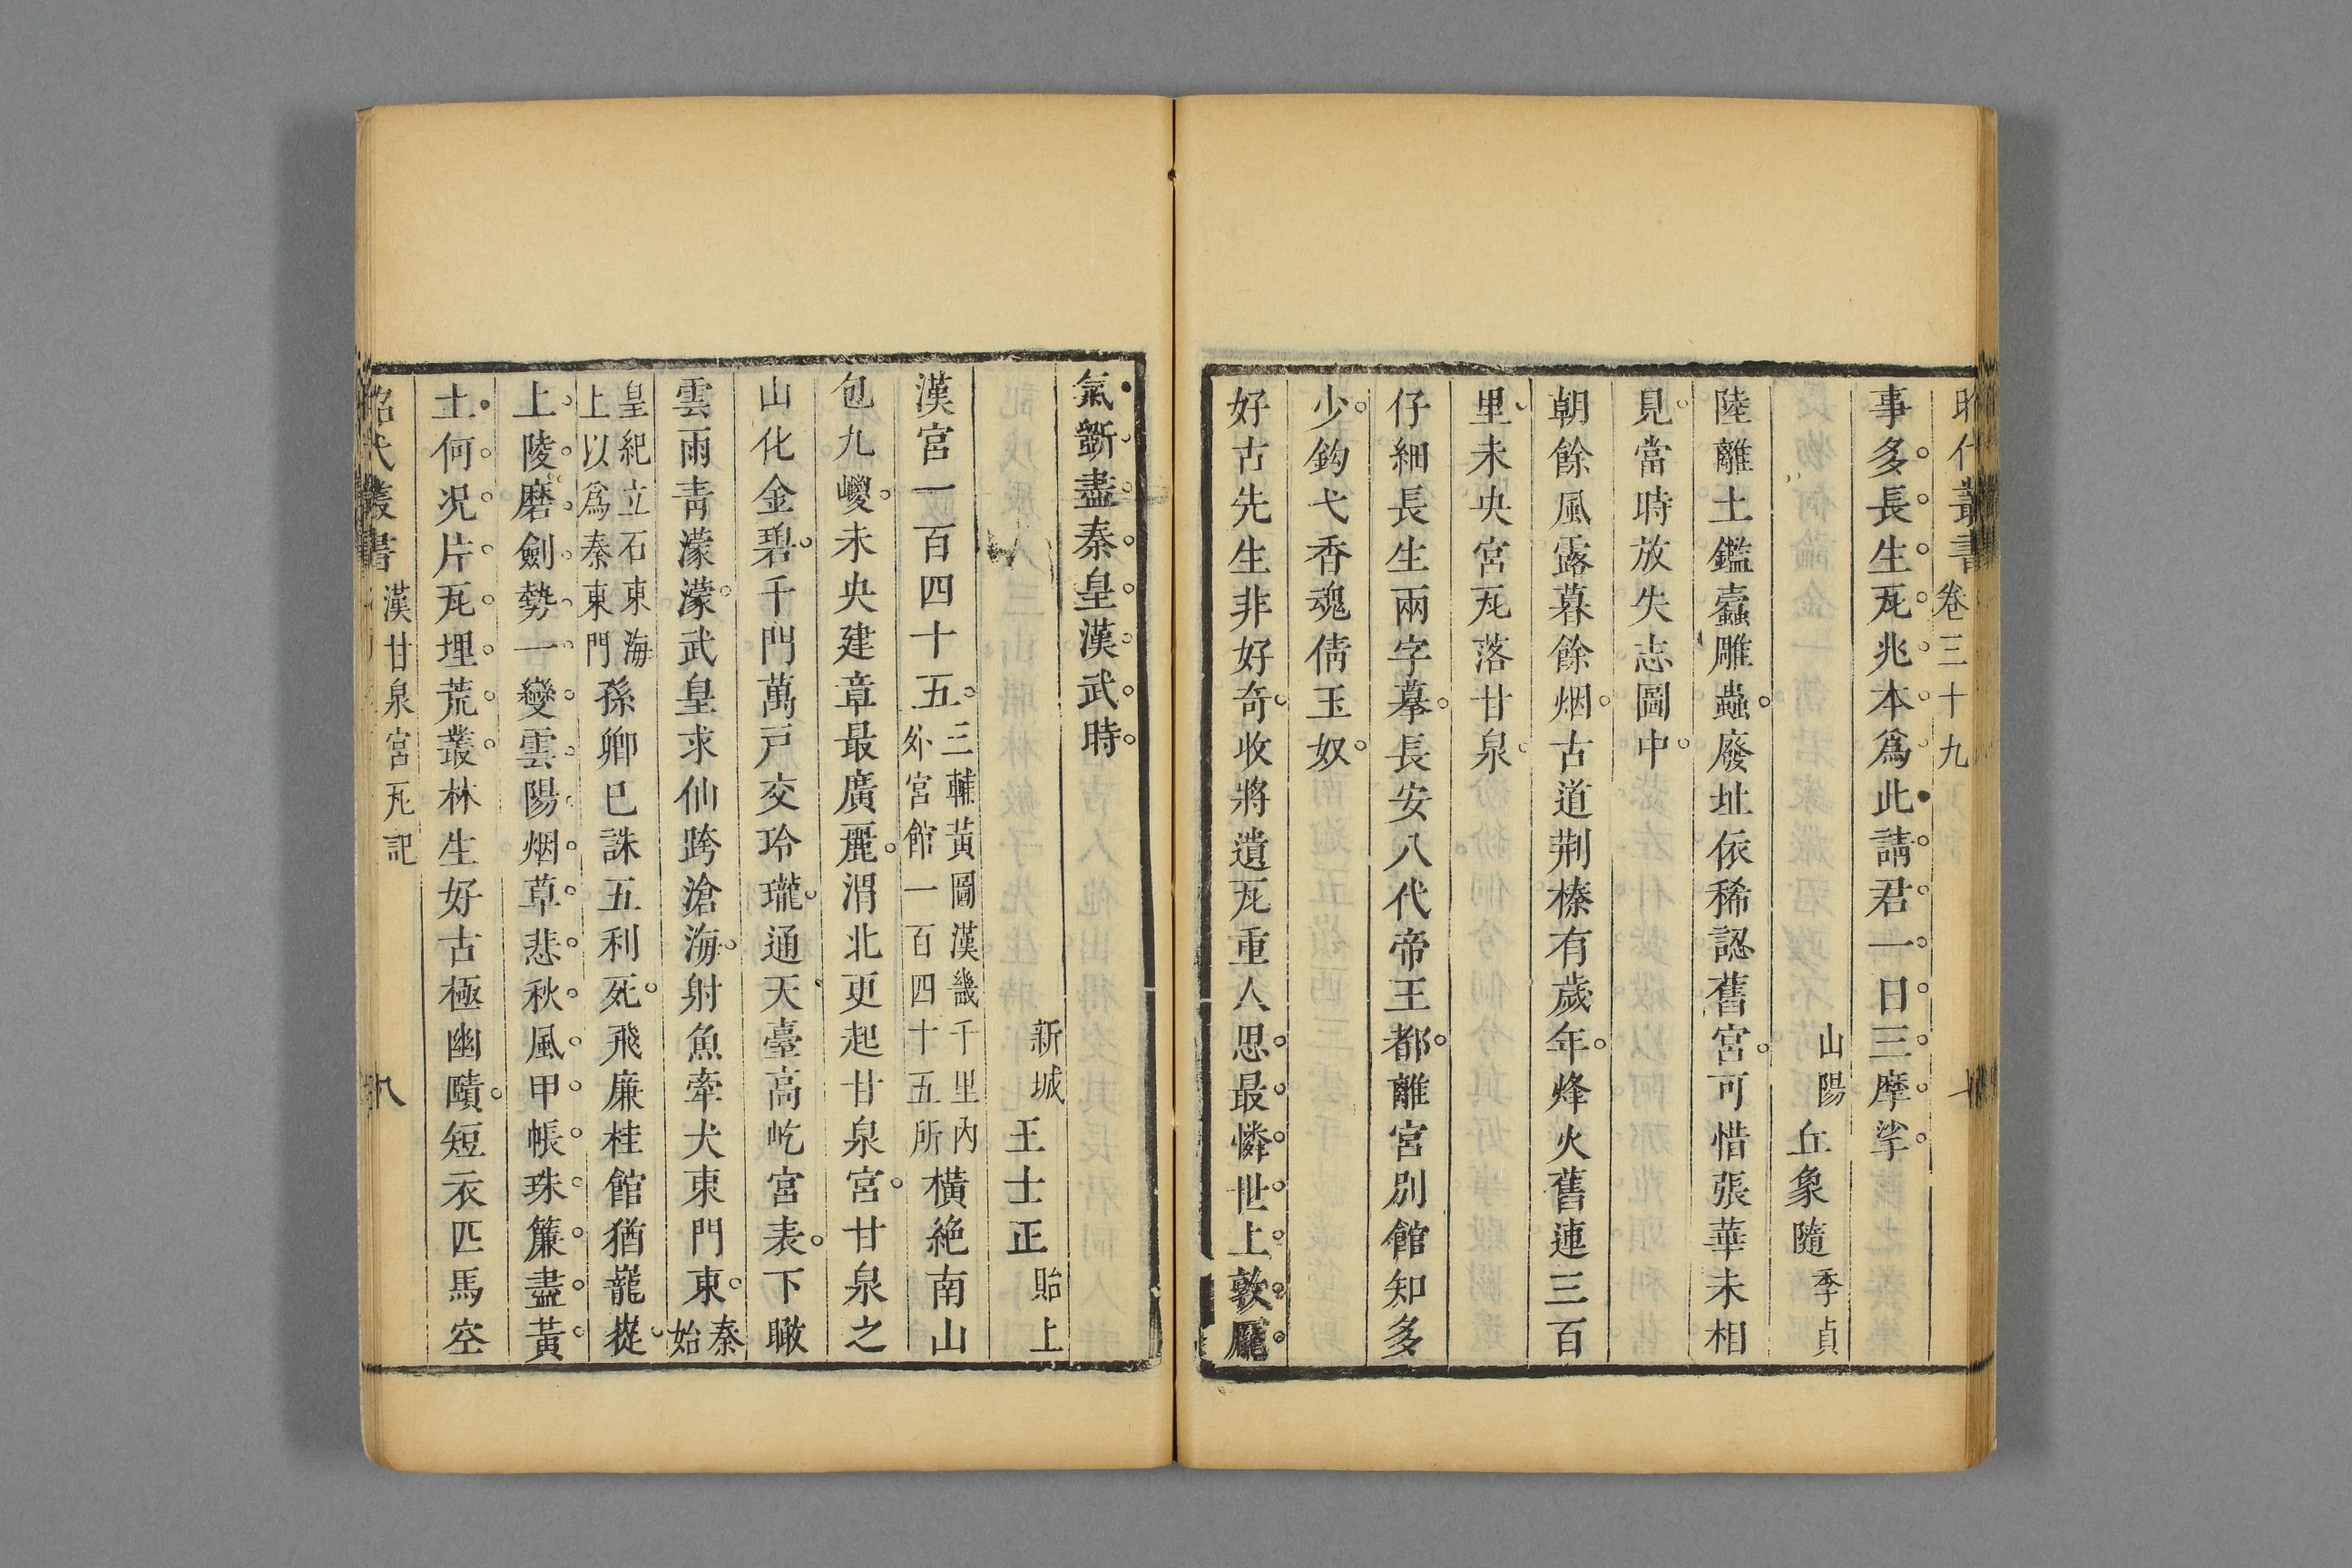 昭代叢書 卷三十九
事多長生瓦兆本爲此請君一日三摩挲
山陽丘象隨季貞
陸離土鑑蠹雕蟲廢址依稀認舊宮可惜張華未相
見當時放失志圖中
朝餘風露暮餘烟古道荆榛有歲年烽火舊連三百
里未央宮瓦落甘泉
仔細長生兩字摹長安八代帝王都離宮別館知多
少鈎弋香魂倩玉奴
好古先生非好奇收將遺瓦重人思最憐世上敦龎
氣斵盡秦皇漢武時
新城王士正貽上
漢宮一百四十五三輔黃圖漢畿千里內外宮館一百四十五所橫絶南山
包九嵕未央建章最廣麗渭北更起甘泉宮甘泉之
山化金碧千門萬戸交玲瓏通天臺高屹宮表下瞰
雲雨靑濛濛武皇求仙跨滄海射魚牽犬東門東秦始
皇紀立石東海上以爲秦東門孫卿已誅五利死飛廉桂館猶巃嵸
上陵磨劍勢一變雲陽烟草悲秋風甲帳珠簾盡黃
土何况片瓦埋荒叢林生好古極幽賾短衣匹馬空
昭代叢書 漢甘泉宮瓦記 八